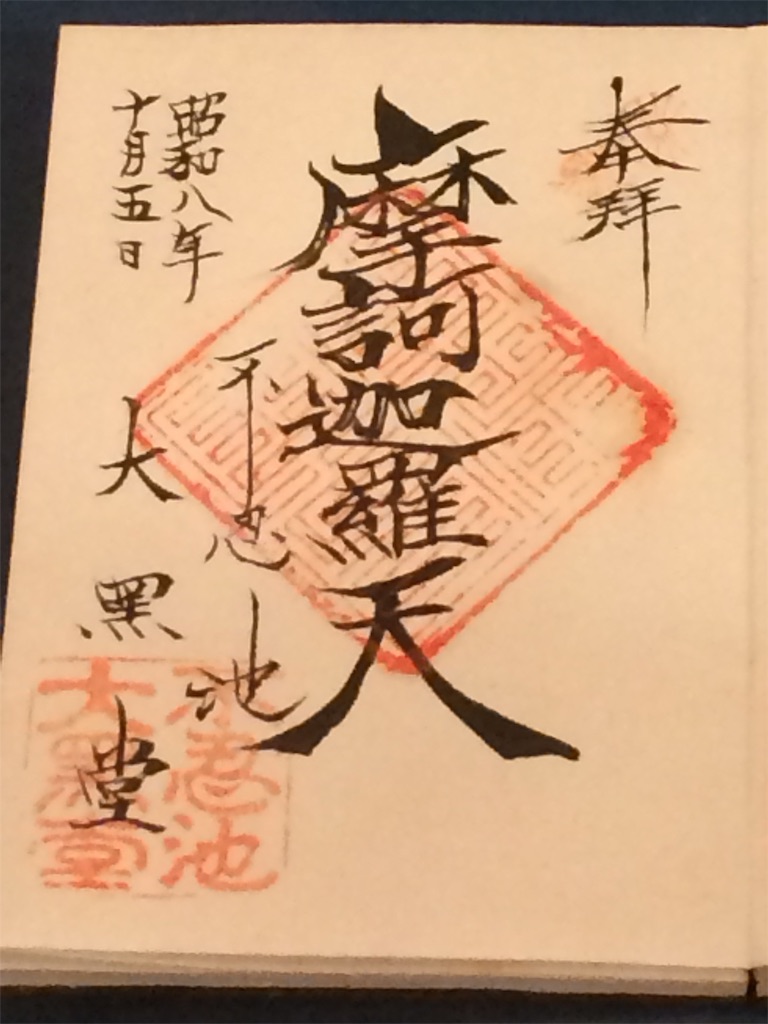 奉拝
摩訶迦羅天
昭和八年
十月五日
不忍池
大黑堂
不忍池
大黑堂